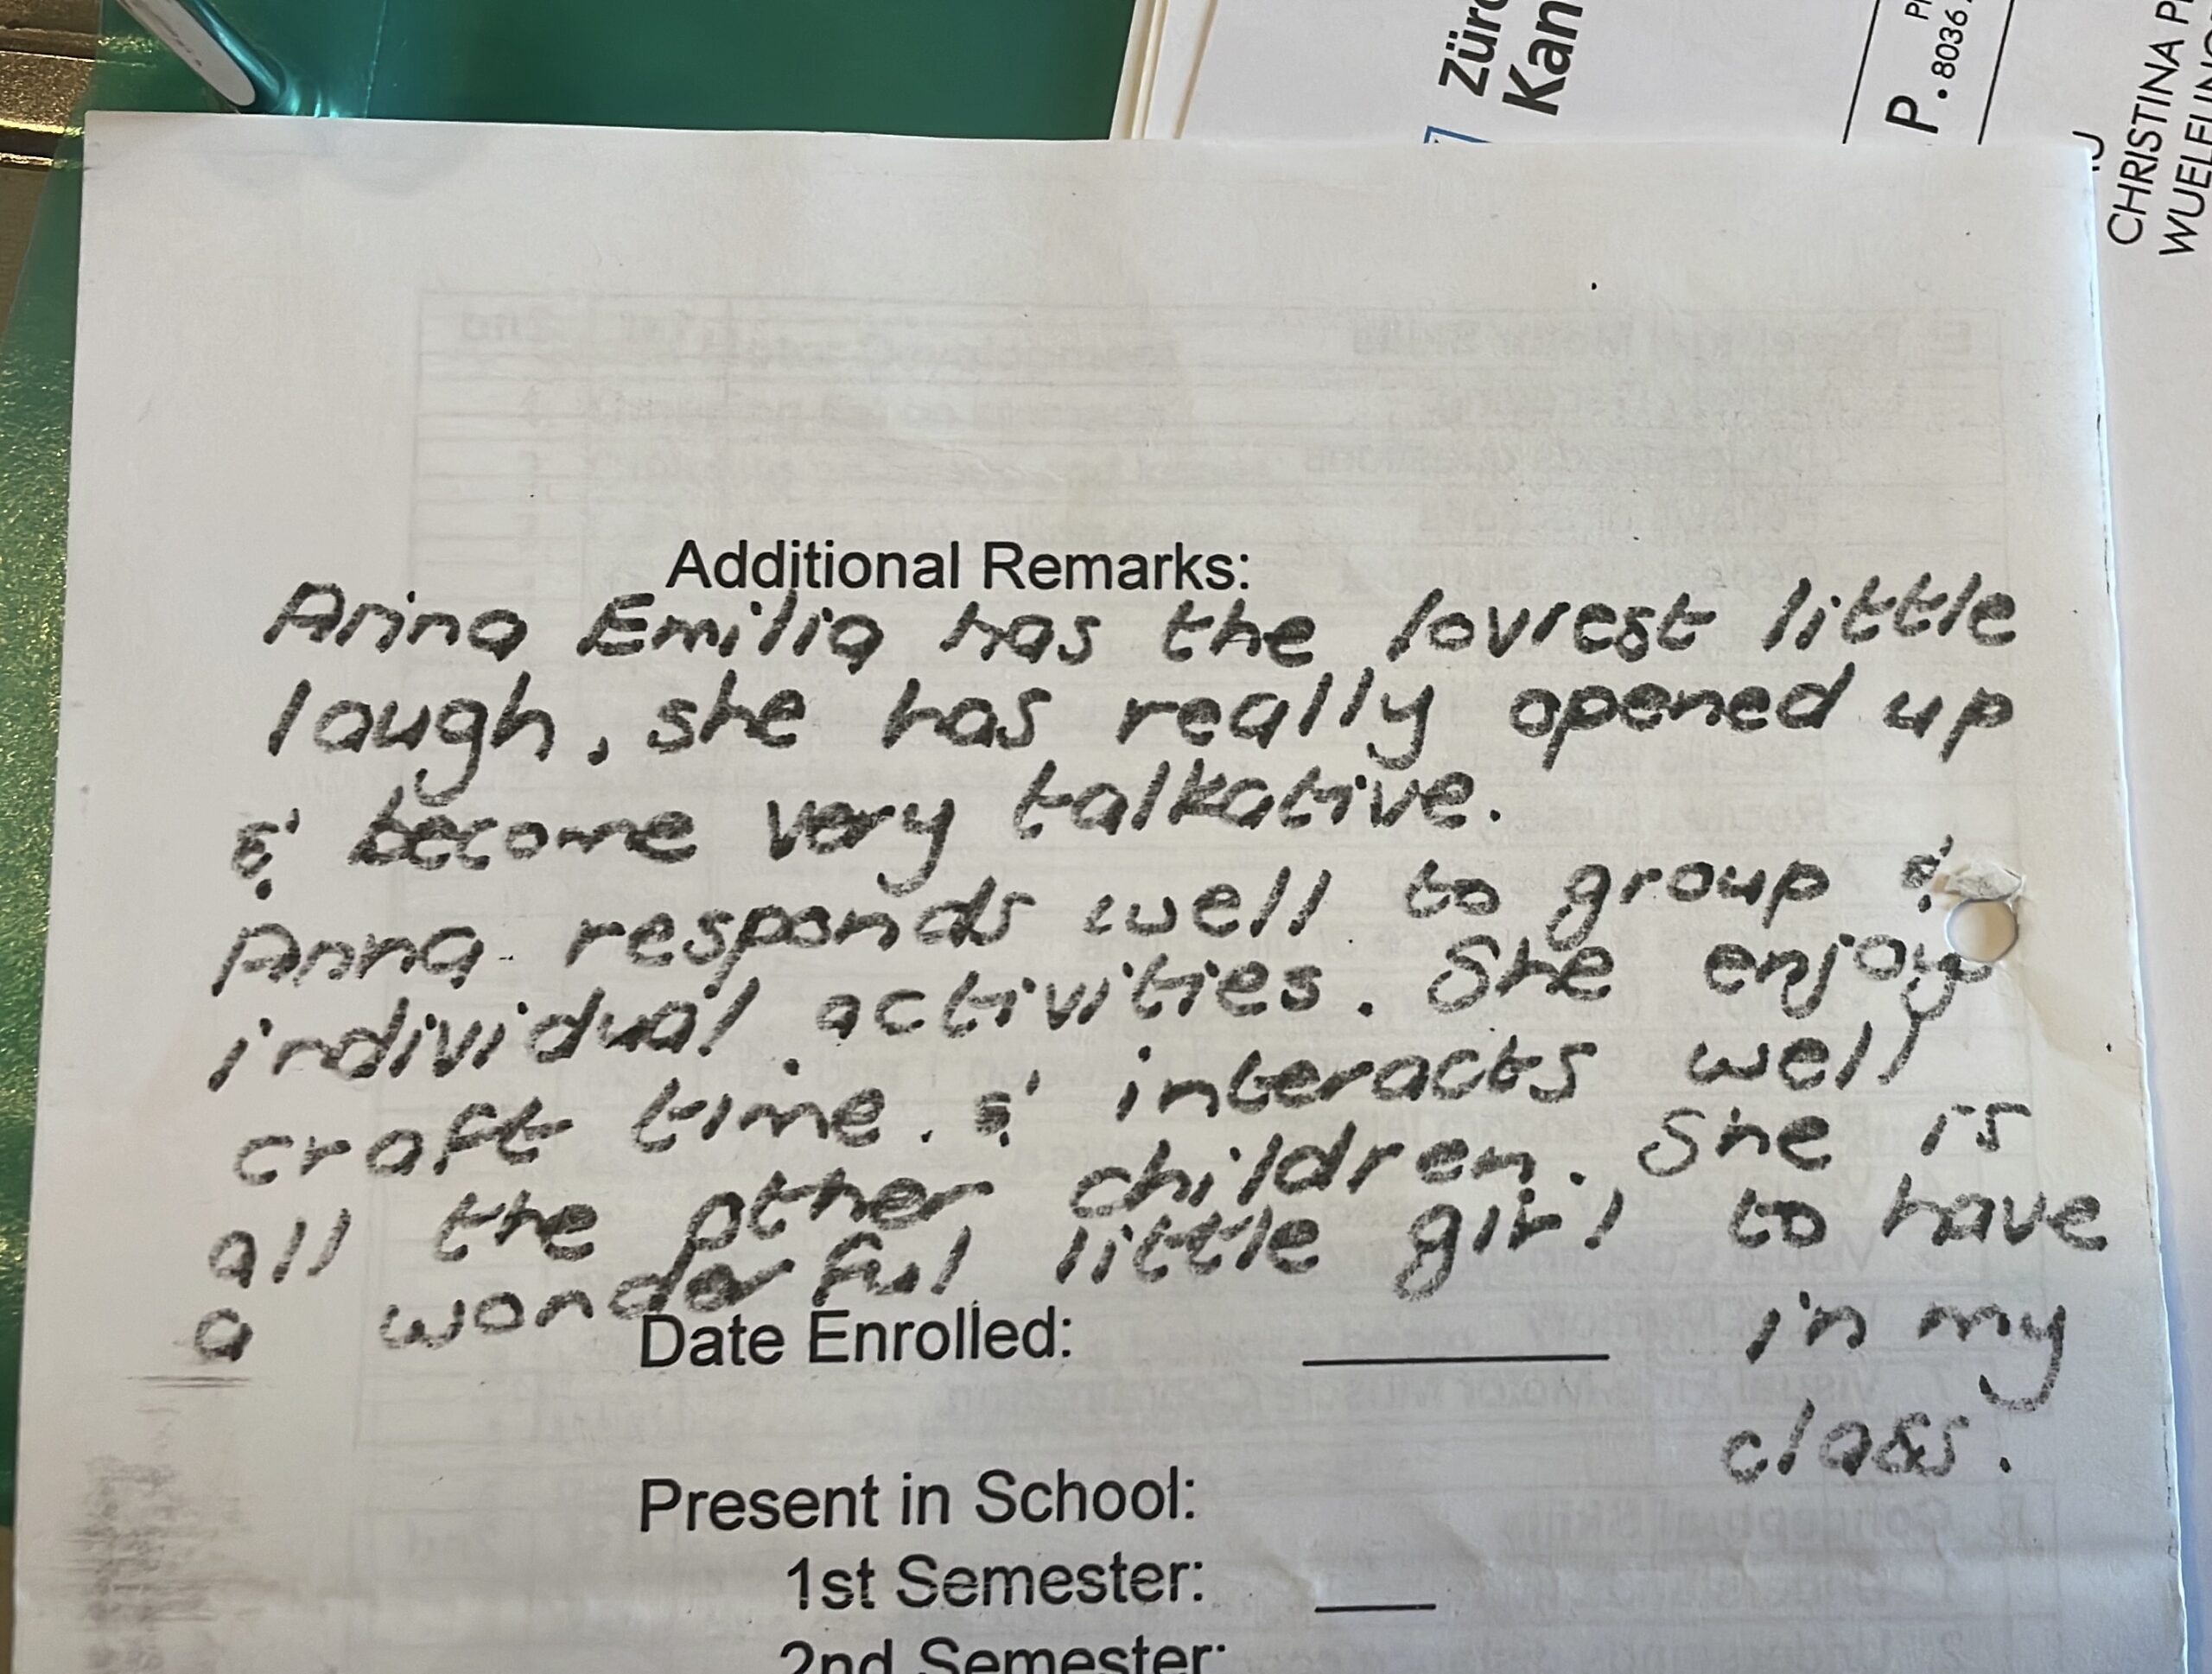 Züri
Kan
P.
8036
CHRISTINA
Additional Remarks:
Anna Emilia has the lovliest little
laugh, she has really opened up
& become very talkative.
Anna responds well to group &
individual activities. She enjoy
craft time. & interacts well
all the other children. She is
a wonderful little girl to have
in my
class.
Date Enrolled:
Present in School:
1st Semester:
2nd Semester: